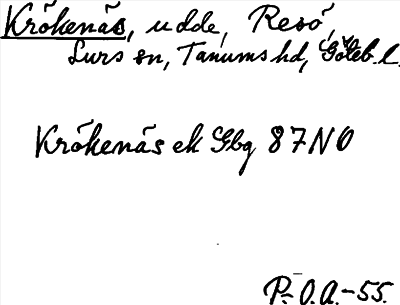 Krökenäs, udde, Resö,
Lurs sn, Tanums hd, Göteb. l.
Krökenäs ek Gbg 87 NO
P. O.A.-55.